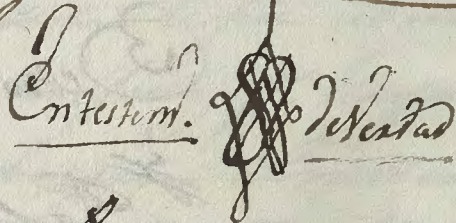 En testimº. de Verdad